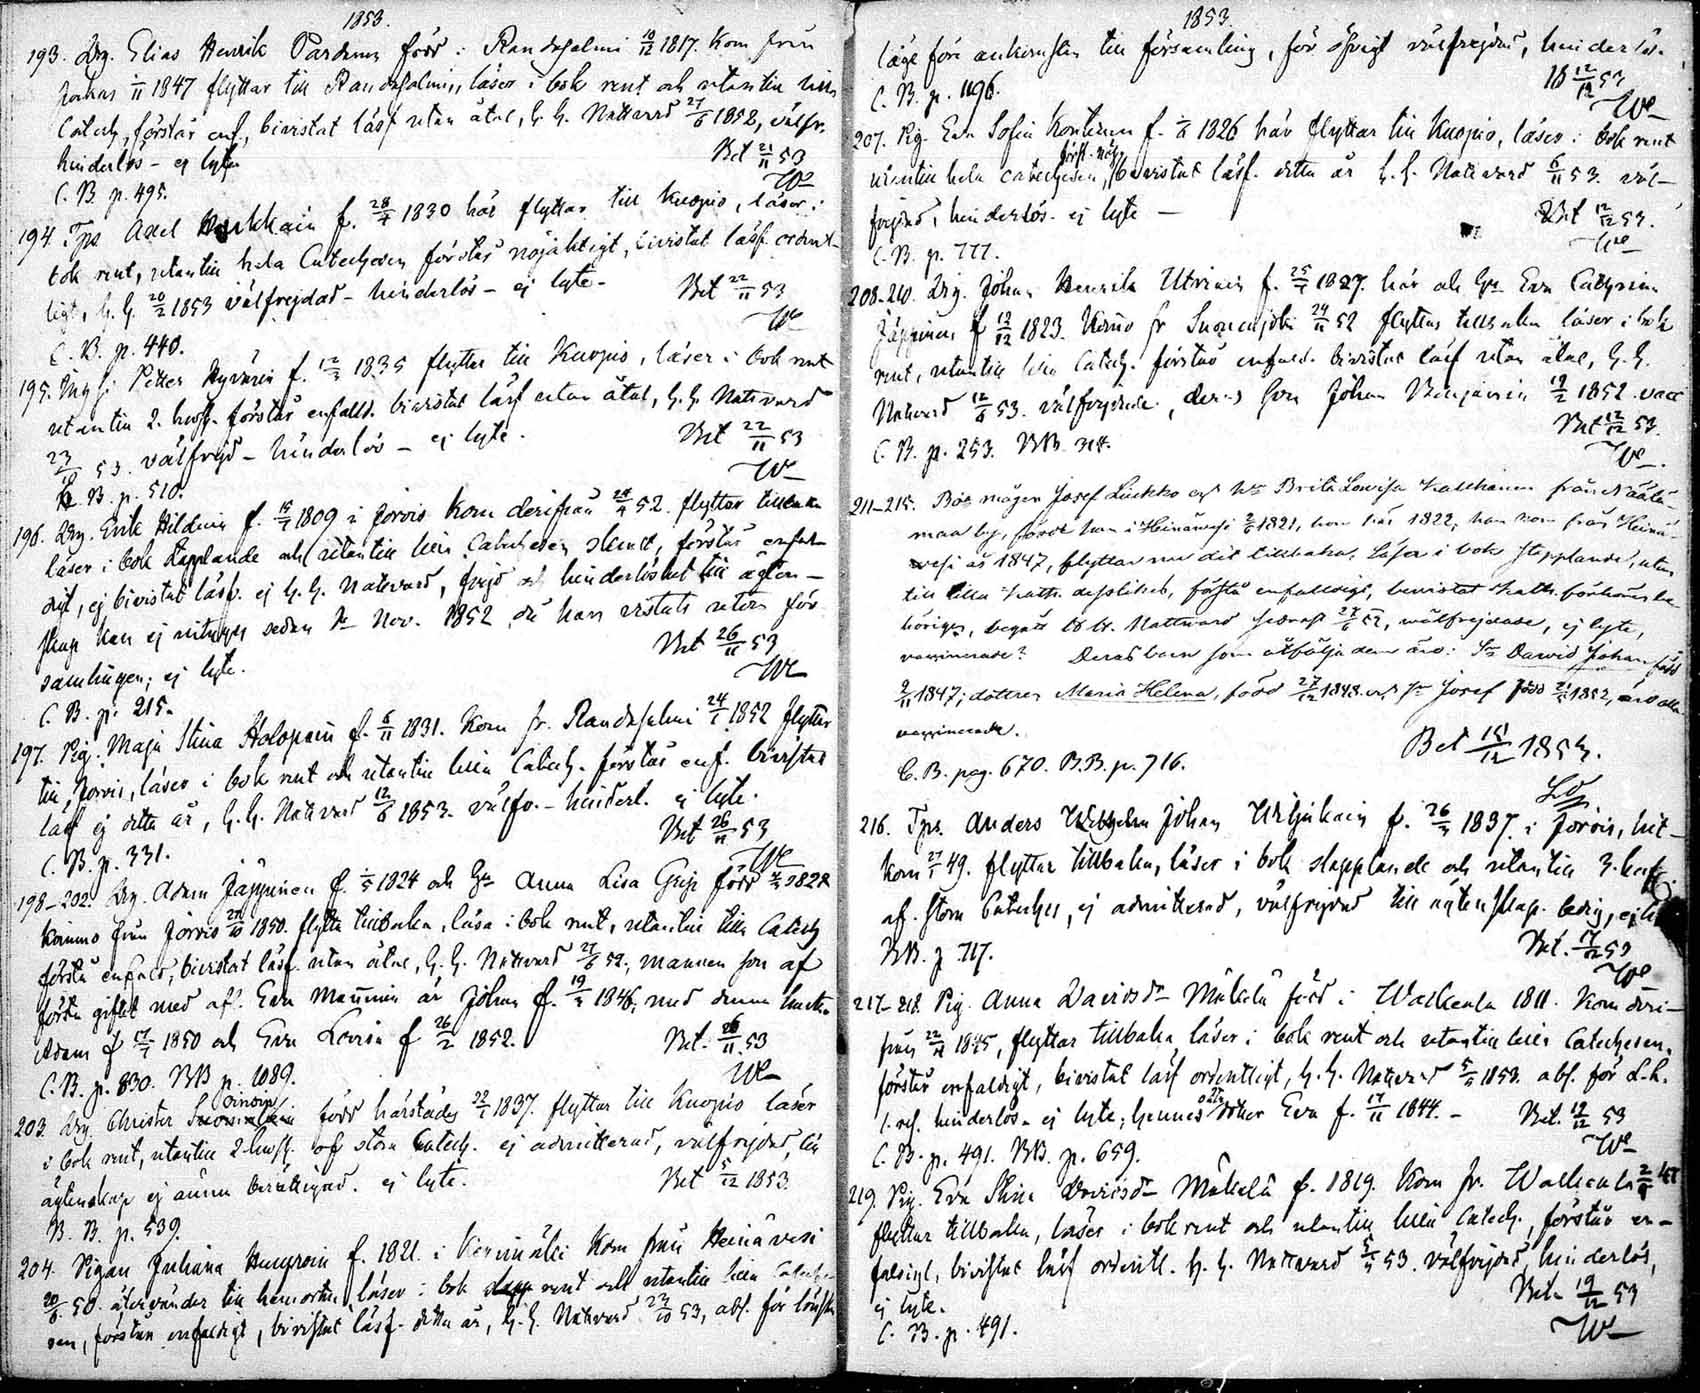 1853.
193. Drg. Elias Henrik Pardanen född i Randasalmi 10/12 1817. Kom från
1/11 1847 flyttar till Randasalmi, läser i bok rent och utantill
Catech, förstår enf., bivistat läsf. utan åtal, H. H. Nattvard 27/6 1852, välfr.
hinderlös - ej lyte
Bet 21/11 53
C. B. p. 495.
194. Axel f. 28/4 1830 här flyttar till Kuopio, läser i
bok rent, utantill hela Catechesen förstår nöjaktigt, bivistat läsf. ordent-
ligt, H. H. 20/2 1853 välfrejdad - hinderlös - ej lyte -
Bet 22/11 53
C. B. p. 440.
195. Petter Hyvärin f. 12/3 1835 flyttar till Kuopio, läser i bok rent
utantill 2. förstår enfalld. bivistat läsf utan åtal, H. H. Nattvard
53. välfrejd - hinderlös - ej lyte.
Bet 22/11 53
B. p. 510.
196. Drg. Erik Hildén f. 1809 i Jorois Kom derifrån 52. flyttar tillbaka
läser i bok stapplande och utantill Catechesen slemt, förstår enfal-
digt, ej bivistat läsf. ej H. H. Nattvard, frejd och hinderlöshet till ägten-
skap kan ej intygas sedan Nov. 1852 då han vistats utom för
samlingen; ej lyte.
Bet 26/11 53
C. B. p. 215.
197. Pig. Maja Stina Holopain f. 6/11 1831. Kom fr. Randasalmi 24/1 1852 flyttar
till Jorois, läser i bok rent och utantill Catech. förstår enf. bivistat
läsf ej detta år, H. H. Nattvard 12/6 1853. välfr. - hinderl. ej lyte.
Bet 26/11 53
C. B. p. 331.
198-202. Drg. Adam Jäppinen f. 1/5 1824 och Anna Lisa Grip född
kommo från Jorois 1850. flytta tillbaka, läsa i bok rent, utantill Catech
förstå enfald, bivistat läsf. utan åtal, H. H. Nattvard 27/6 52, mannen son af
första giftet med Eva Mannin är Johan f. 19/2 1846, med denna hustru
Adam f 17/7 1850 och Eva Lovisa f 26/2 1852.
Bet. 26/11 53
C. B. p. 830. BB p. 1089.
203. Drg Christer född härstädes 1837. flyttar till Kuopio läser
i bok rent, utantill 2 af stora Catech. ej admitterad, välfrejdad, till
ägtenskap ej ännu berättigad. ej lyte.
Bet 5/12 1853
B. B. p. 539.
204. Pigan Juliana f. 1821. i Kerimäki Kom från Heinävesi
50. återvänder till hemorten, läser i bok rent och utantill Cateche-
sen, förstår enfaldigt, bivistat läsf. detta år, H. H. Nattvard 23/10 53, abs. för
1853.
läge före ankomsten till församling, för öfrigt välfrejdad, hinderlös.
12/12 53
C. B. p. 1196.
207. Pig. Eva Sofia Kontinen f. 1826 här flyttar till Kuopio, läser i bok rent
utantill hela catechesen, först. nöj. bivistat läsf. detta år H. H. Nattvard 6/11 53. väl-
frejdad, hinderlös - ej lyte -
Bet 12/12 53.
C. B. p. 777.
208-210. Drg. Johan Henrik Utriain f. 25/1 1827. här och Eva Cathrina
Jäppinen f 12/12 1823. Kommo fr Suonenjoki 24/11 52 flyttar tillbaka läser i bok
rent, utantill Catech. förstår enfald. bivistat läsf utan åtal, H. H.
Nattvard 12/6 53. välfrejdade, deras son Johan Benjamin 19/2 1852 vacc
Bet 12/12 53.
C. B. p. 253. BB. 314.
211-215. Bonmågen Josef Luukko och Brita Lovisa Katthainen från
maa by, född han i Heinävesi 1821, hon här 1822, han kom från Heinä-
vesi år 1847, flyttar nu dit tillbaka. Läsa i bok stapplande, utan
till lilla kath. , förstå enfaldigt, bevistat kath. förhören be-
hörigen, begått H. H. Nattvard senast 27/6 52, wälfrejdade, ej lyte,
vaxinerade? Deras barn som åtfölja dem äro: Dawid Johan född
9/11 1847; dottren Maria Helena, född 27/12 1848. och Josef född 1852, äro alla
vaxinerade.
Bet 15/12 1853.
C. B. pag. 670. B. B. p. 716.
216. Anders Johan f. 26/3 1837 i Jorois, hit-
kom 27/1 49. flyttar tillbaka, läser i bok stapplande och utantill 3.
af stora Cateches, ej admitterad, välfrejdad till ägtenskap ledig, ej
Bet. 17/12 53
BB. p. 717.
217-218. Pig. Anna Davidsdr Mäkelä född i Walkeala 1811. Kom deri-
från 1845, flyttar tillbaka, läser i bok rent och utantill Catechesen,
förstår enfaldigt, bivistat läsf ordentligt, H. H. Nattvard 5/5 1853. abs. för L.
hinderlös - ej lyte; hennes dotter Eva f. 17/11 1844. -
Bet. 19/12 53
C. B. p. 491. BB. p. 659.
219. Pig. Eva Stina Davidsdr Mäkelä f. 1819. Kom fr. Walkeala
flyttar tillbaka, läser i bok rent och utantill Catech., förstår en-
faldigt, bivistat läsf ordentl. H. H. Nattvard 5/5 53. välfrejdad, hinderlös,
ej lyte.
Bet. 19/12 53
C. B. p. 491.